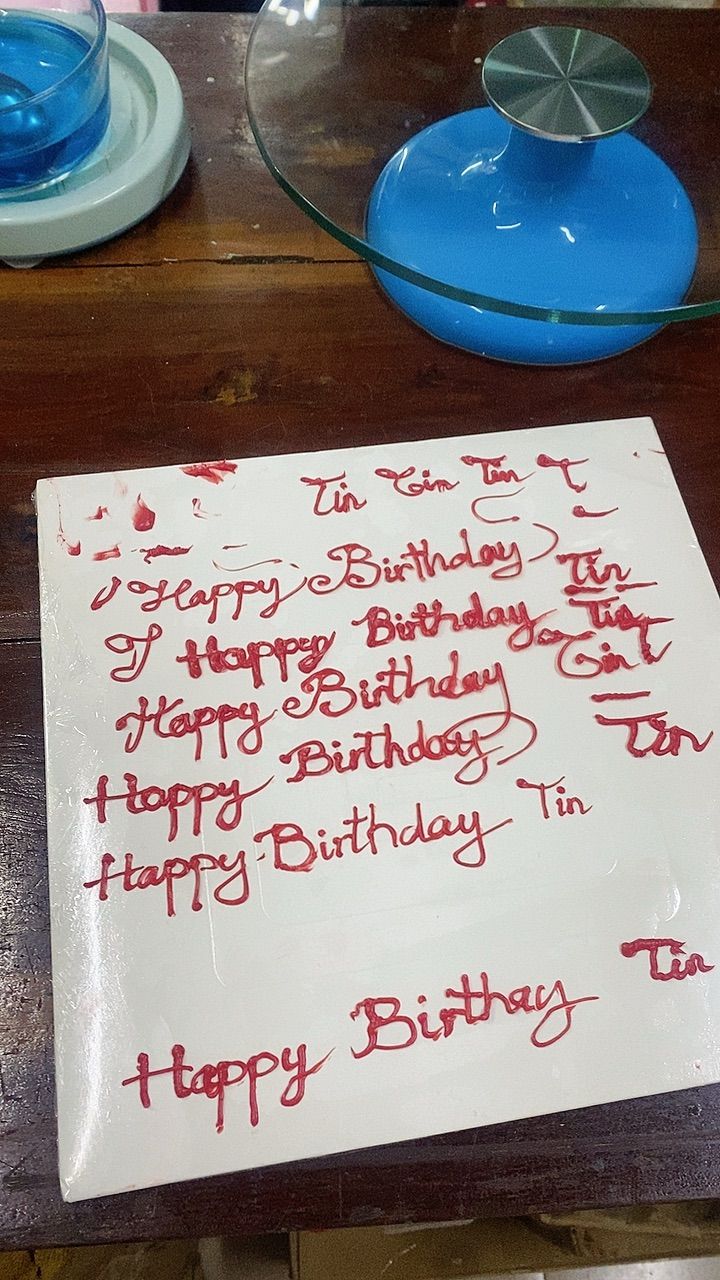 Tin Tin Tin T
Happy Birthday Tin
T Happy Birthday Tin
Happy Birthday Tin T
Happy Birthday Tin
Happy Birthday Tin
Tin
Happy Birthay